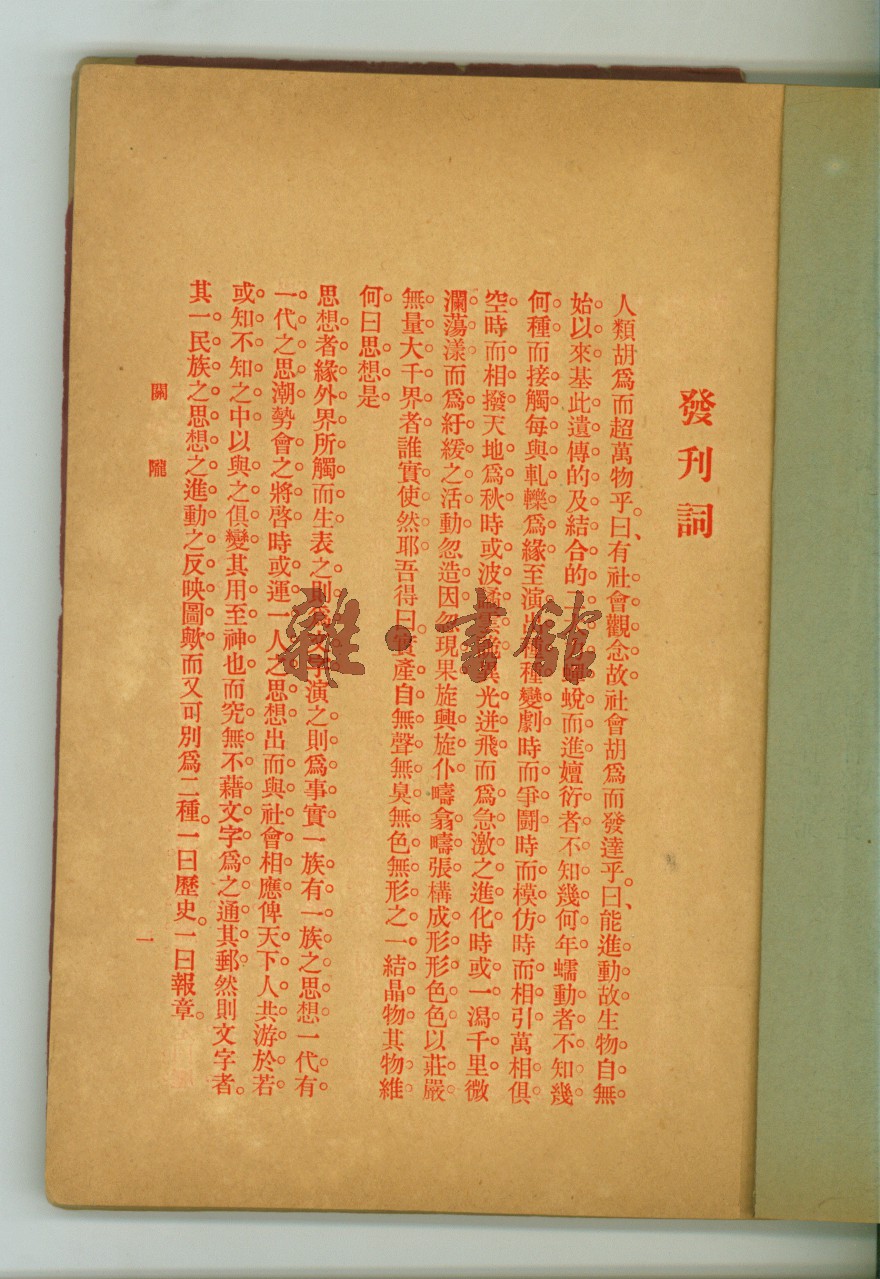 發刊詞
人類胡爲而超萬物乎。曰、有社會觀念故社會胡爲而發達乎。曰、能進動故生物自無
始以來基此遺傳的及結合的二蛻而進嬗衍者不知幾何年蠕動者不知幾
何種而接觸每與軋轢爲緣至演出種種變劇時而爭鬪時而模仿時而相引萬相俱
空時而相撥天地爲秋時或波光迸飛而爲急激之進化時或一瀉千里微
瀾蕩漾而爲紆緩之活動忽造因忽現果旋興旋仆疇翕疇張構成形形色色以莊嚴
無量大千界者誰實使然耶吾得曰實產自無聲無臭無色無形之一結晶物其物維
何曰思想是
思想者緣外界所觸而生表之則爲文字演之則爲事實一族有一族之思想一代有
一代之思潮勢會之將啓時或運一人之思想出而與社會相應俾天下人共游於若
或知不知之中以與之俱變其用至神也而究無不藉文字爲之通其郵然則文字者。
其一民族之思想之進動之反映圖歟而又可別爲二種。一曰歷史。一曰報章。
關隴
一
雜·書館